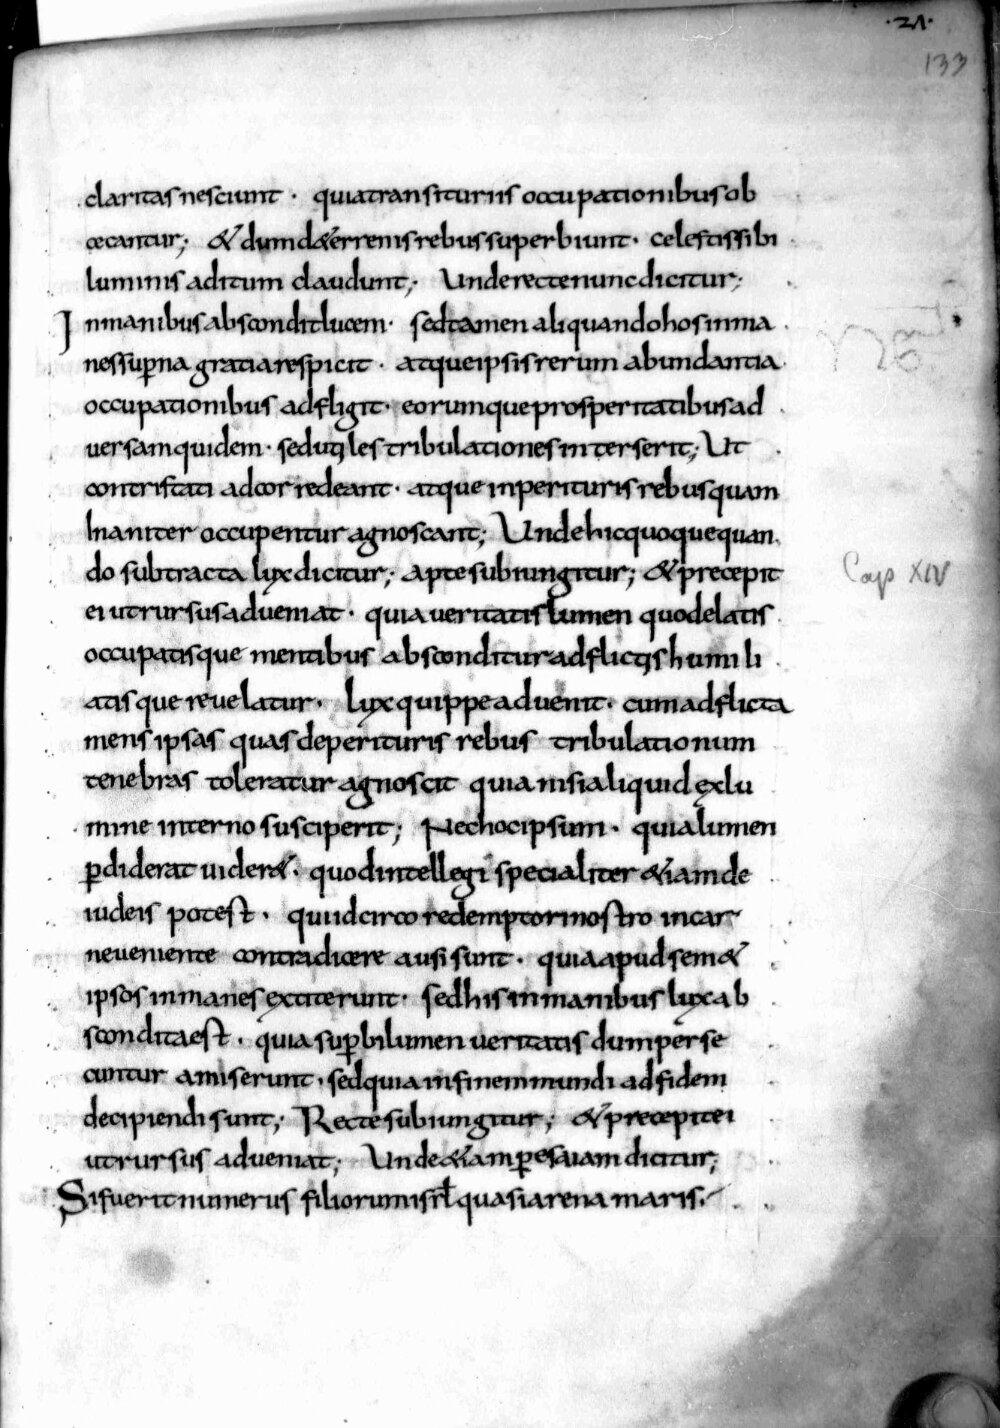 ·21·
133
claritas nesciunt · quia transituriis occupationibus ob
cecantur; & dum d&errenis rebus superbiunt · celestis sibi
luminis aditum claudunt; Unde recte nunc dicitur;
Inmanibus abscondit lucem · sed tamen aliquando hos inma
nes sup̄na gratia respicit · atque ipsis rerum abundantia
occupationibus adfligit · eorumque prosperitatibus ad
versam quidem · sed utiles tribulationes interserit; Ut
contristati ad cor redeant · atque in perituris rebus quam
Inaniter occupentur agnoscant; Unde hic quoque quan
do subtracta lux dicitur; apte subiungitur; & precepit
ei ut rursus adveniat · quia veritatis lumen quod elatis
occupatisque mentibus absconditur adflictis humili
atisque revelatur · lux quippe advenit · cum adflicta
mens ipsas quas de perituris rebus tribulationum
tenebras toleratur agnoscit quia nisi aliquid ex lu
mine interno susciperit; Nec hoc ipsum · quia lumen
p̄diderat vider& · quod intellegi specialiter &iam de
iudeis potest · qui idcirco redemptori nostro in car
ne veniente contradicere ausi sunt · quia apud sem&
ipsos inmanes extiterunt · sed his inmanibus lux ab
scondita est · quia sup̄bi lumen veritatis dum perse
cuntur amiserunt · sed quia in finem mundi ad fidem
decipiendi sunt; Recte subiungitur; & precepit ei
ut rursus adveniat; Unde &iam p̄ esaiam dicitur;
Si fuerit numerus filiorum isrl̄ quasi arena maris ·
Cap XIV